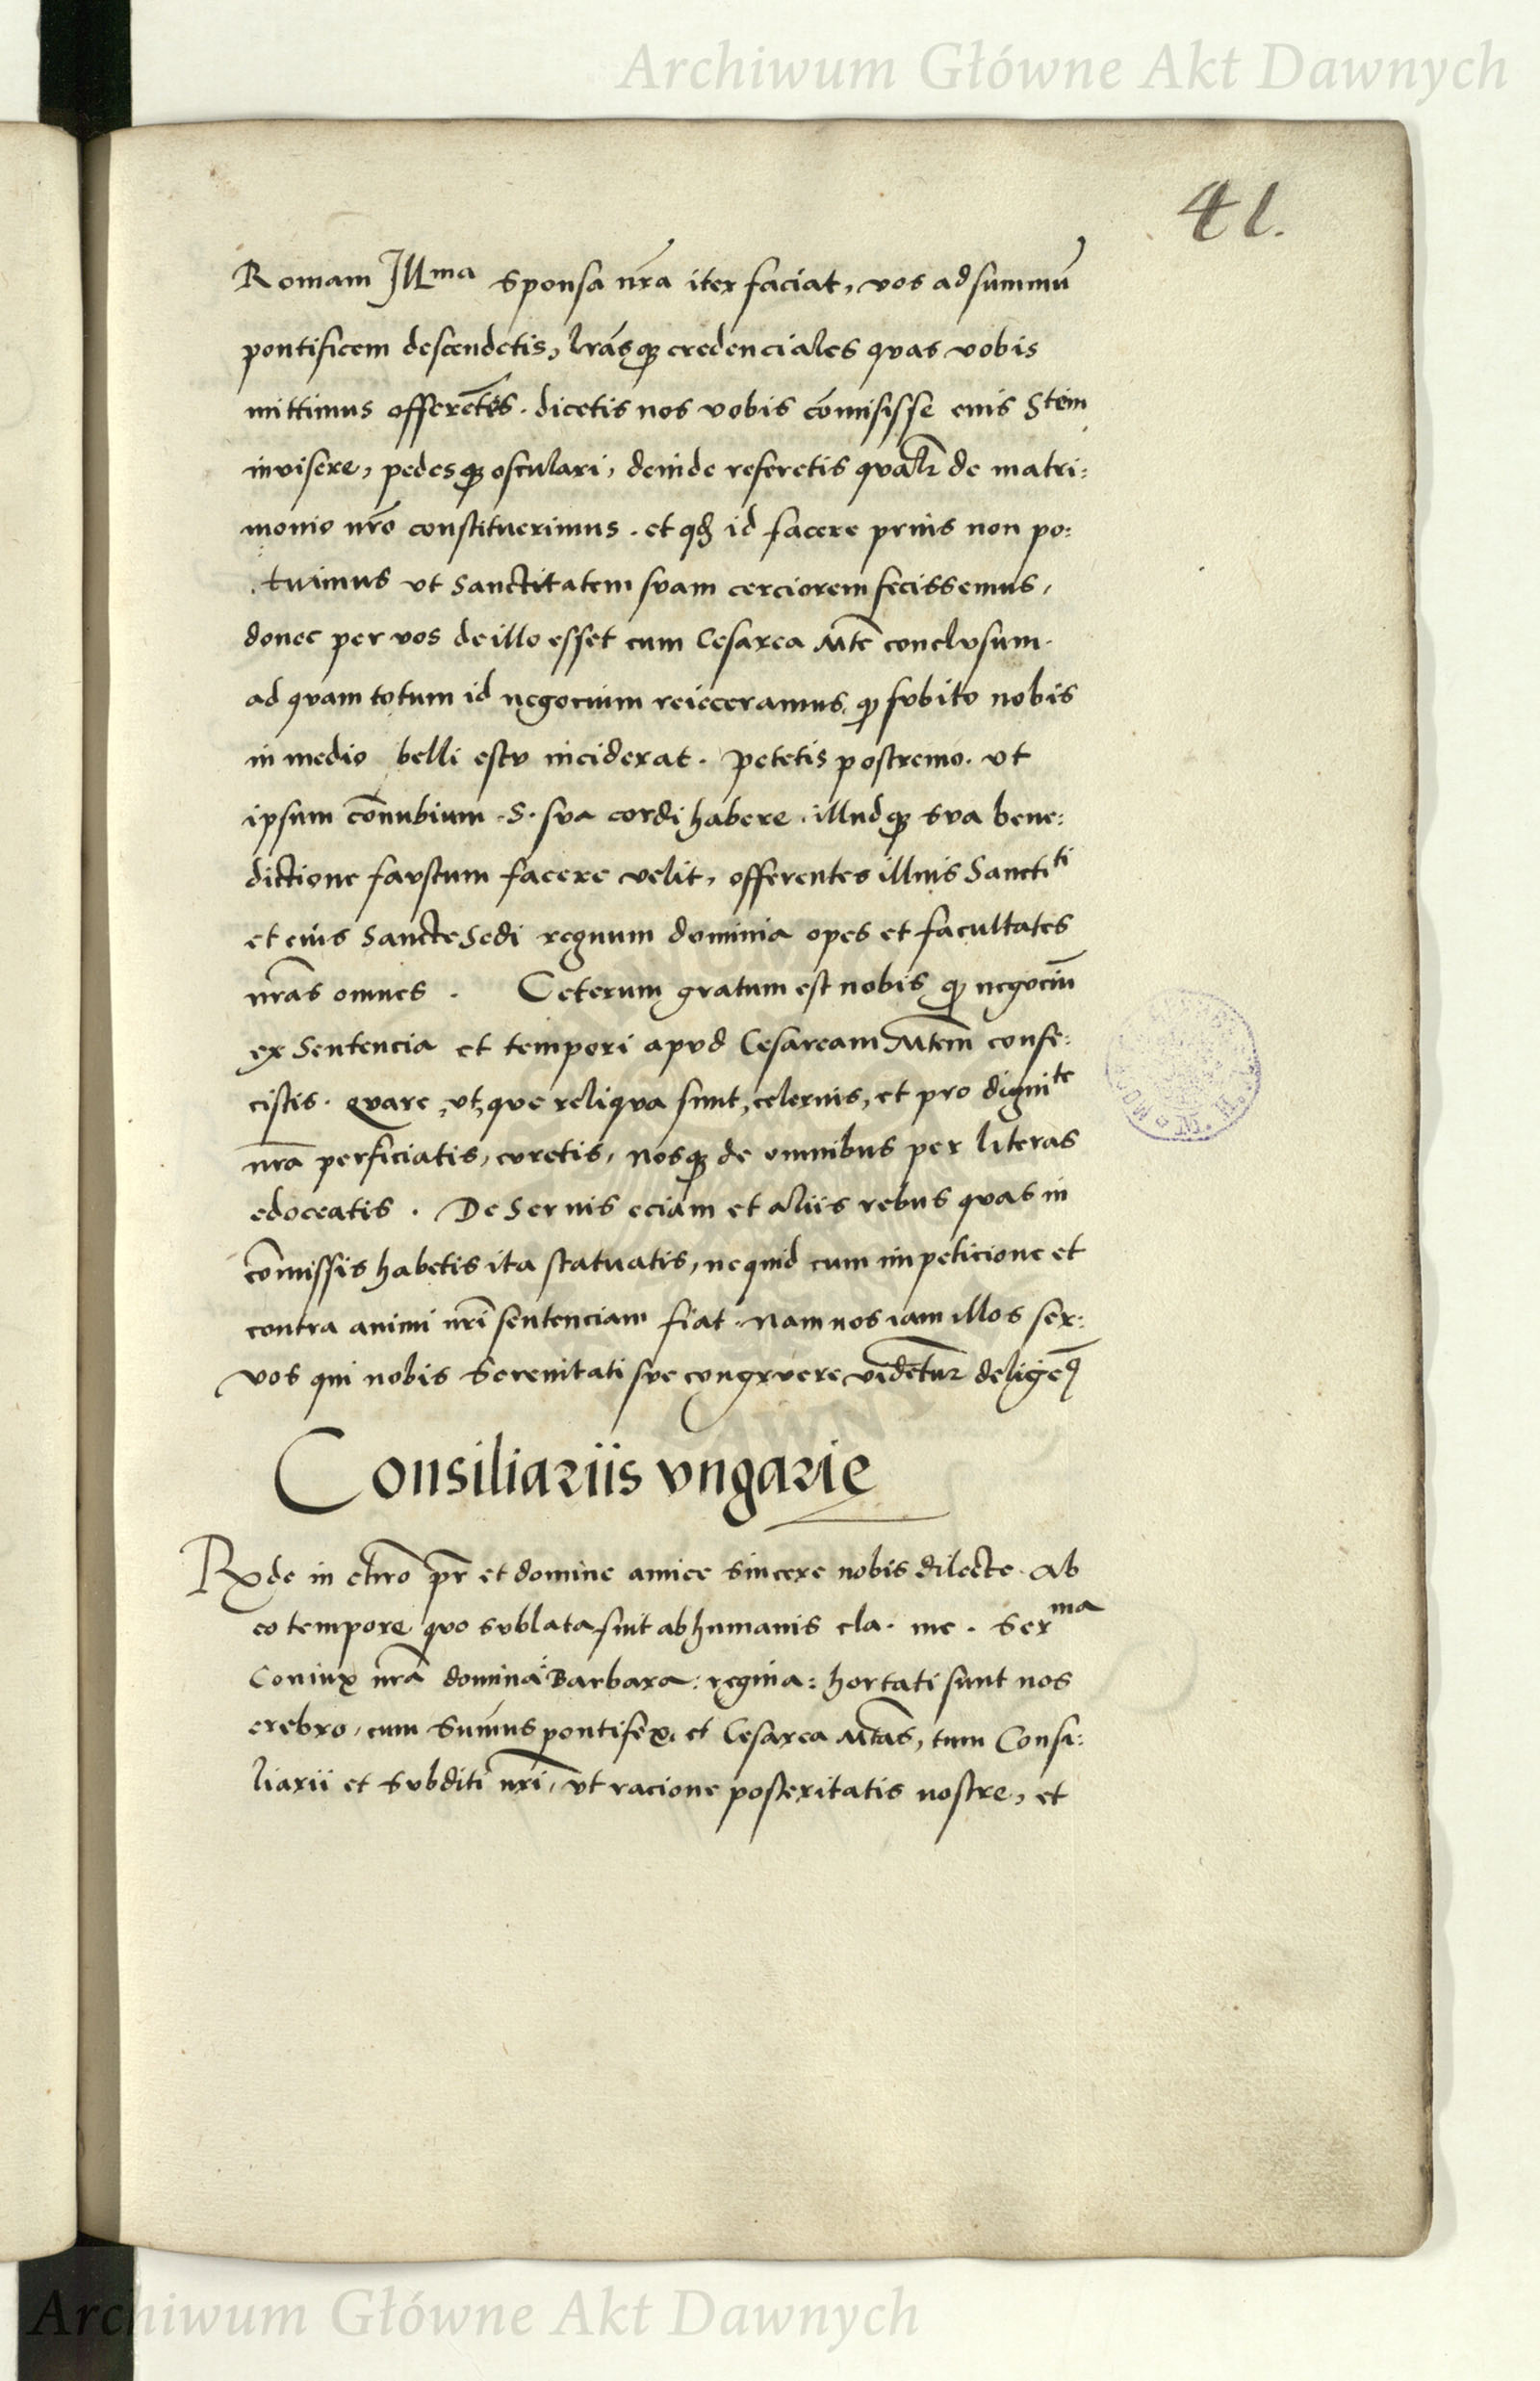 Archiwum Główne Akt Dawnych
41.
Romam Illma sponsa nr̃a iter faciat, vos ad summũ
pontificem descendetis, lrãsq credenciales quas vobis
mittimus offerẽtes. dicetis nos vobis cõmisisse eius Stem
invisere, pedesq osculari, deinde referetis qualr̃ de matri:
monio nrõ constituerimus. et qđ id facere prius non po:
tuimus vt Sanctitatem suam cerciorem fecissemus,
donec per vos de illo esset cum Cesarea Mtẽ conclusum.
ad quam totum id negocium reieceramus q subito nobis
in medio belli estu inciderat. petetis postremo. vt
ipsum cõnubium .S. sua cordi habere. illudq sua bene:
dictione faustum facere velit, offerentes illius Sanctiti
et eius Sancte Sedi regnum dominia opes et facultates
nrãs omnes. Ceterum gratum est nobis q negociũ
ex Sentencia et tempori apud Cesaream Mtem̃ confe:
cistis. quare, vt, que reliqua sunt, celerius, et pro dignite
nrã perficiatis, curetis, nosq de omnibus per literas
edoceatis. De Servis eciam et aliis rebus quas in
cõmissis habetis ita statuatis, ne quid cum impeticione et
contra animi nrĩ sentenciam fiat. Nam nos iam illos ser:
vos qui nobis Serenitati sue congruere vidẽtur
Consiliariis vngarie
Rx̃de in chrõ pr̃ et domine amice sincere nobis dilecte. Ab
eo tempore quo sublata fuit ab humanis cla. me. Serma
Coniux nrã domina Barbara: regina: hortati sunt nos
crebro, cum Sum̃us pontifex. et Cesarea Mtãs, tum Consi:
liarii et Subditi nrĩ, vt racione posteritatis nostre, et
Archiwum Główne Akt Dawnych